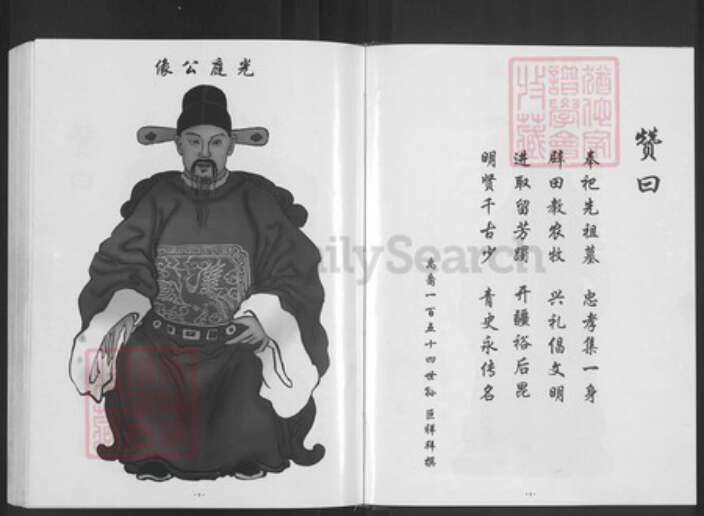 光庭公像
赞曰
奉祀先祖墓 忠孝集一身
辟田教农牧 兴礼倡文明
进取留芳躅 开疆裕后昆
明贤千古少 青史永传名
一百五十四世孙 祥拜撰
猶他家譜學會特藏
ilySearch